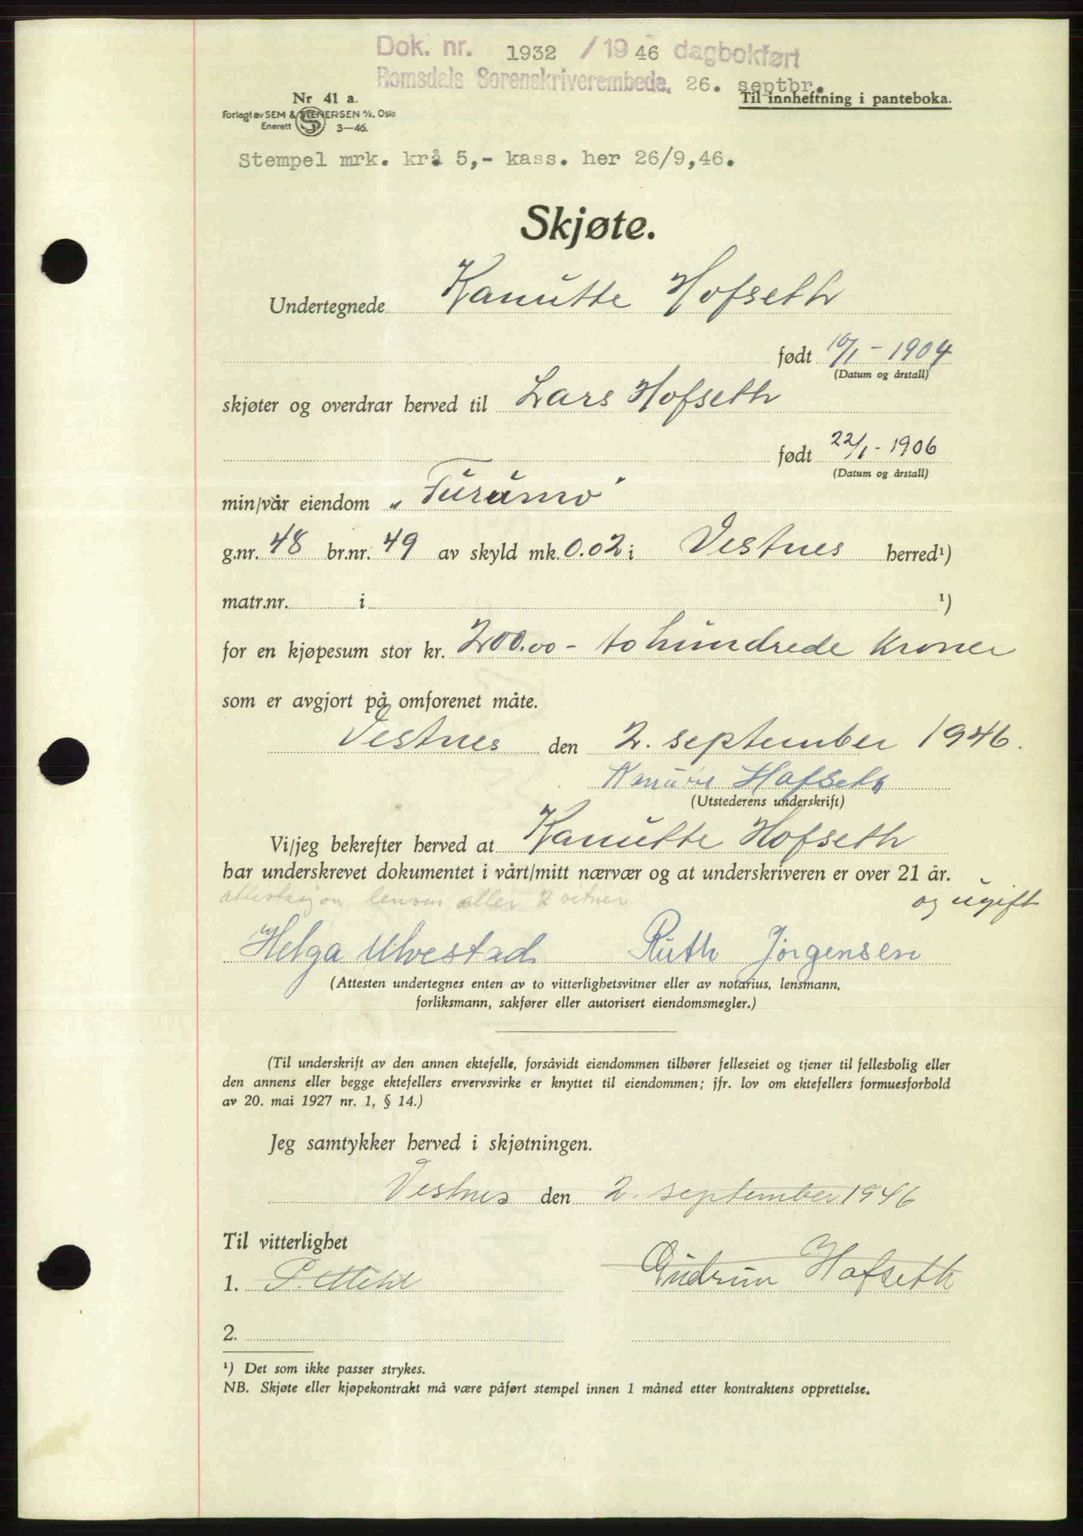 Dok. nr. 1932 / 1946 dagbokført
Romsdals Sorenskriverembede, 26. septbr.
Nr 41 a.
Til innheftning i panteboka.
Forlagt av SEM & STENERSEN A/S, Oslo
Enerett 3—46.
Stempel mrk. krå 5,- kass. her 26/9,46.
Skjøte.
Undertegnede Kanutte Hofseth
født 10/1 - 1904
(Datum og årstall)
skjøter og overdrar herved til Lars Hofseth
født 22/1 - 1906
(Datum og årstall)
min/vår eiendom „Furumo"
g.nr. 48 br.nr. 49 av skyld mk. 0.02 i Vestnes herred¹)
matr.nr. i ¹)
for en kjøpesum stor kr. 200.00 - to hundrede kroner
som er avgjort på omforenet måte.
Vestnes den 2. september 1946.
Hofseth
(Utstederens underskrift)
Vi/jeg bekrefter herved at Kanutte Hofseth
har underskrevet dokumentet i vårt/mitt nærvær og at underskriveren er over 21 år.
og ugift
eller 2 vitner
Helga Ulvestad Ruth Jørgensen
(Attesten undertegnes enten av to vitterlighetsvitner eller av notarius, lensmann,
forliksmann, sakfører eller autorisert eiendomsmegler.)
(Til underskrift av den annen ektefelle, forsåvidt eiendommen tilhører felleseiet og tjener til fellesbolig eller
den annens eller begge ektefellers ervervsvirke er knyttet til eiendommen; jfr. lov om ektefellers formuesforhold
av 20. mai 1927 nr. 1, § 14.)
Jeg samtykker herved i skjøtningen.
Vestnes den 2. september 1946
Til vitterlighet
Gudrun Hofseth
1.
2.
¹) Det som ikke passer strykes.
NB. Skjøte eller kjøpekontrakt må være påført stempel innen 1 måned etter kontraktens opprettelse.